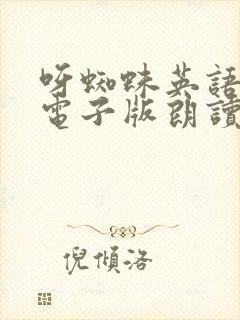 呀蜘蛛英語
電子版朗讀
倪傾洛